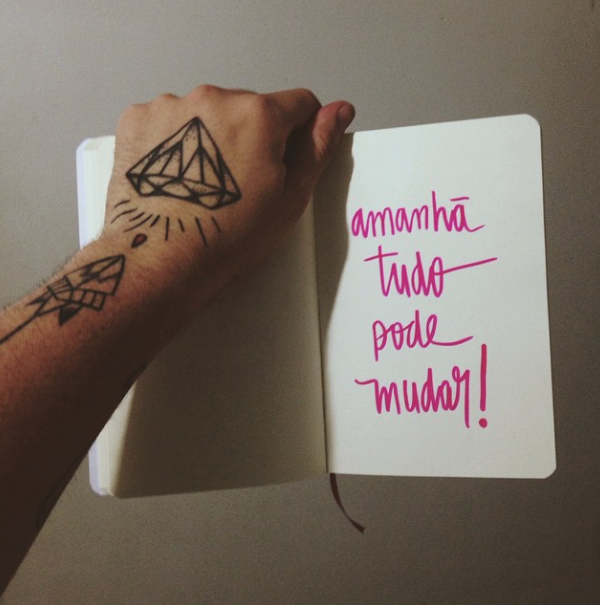 amanhã
tudo
pode
mudar!